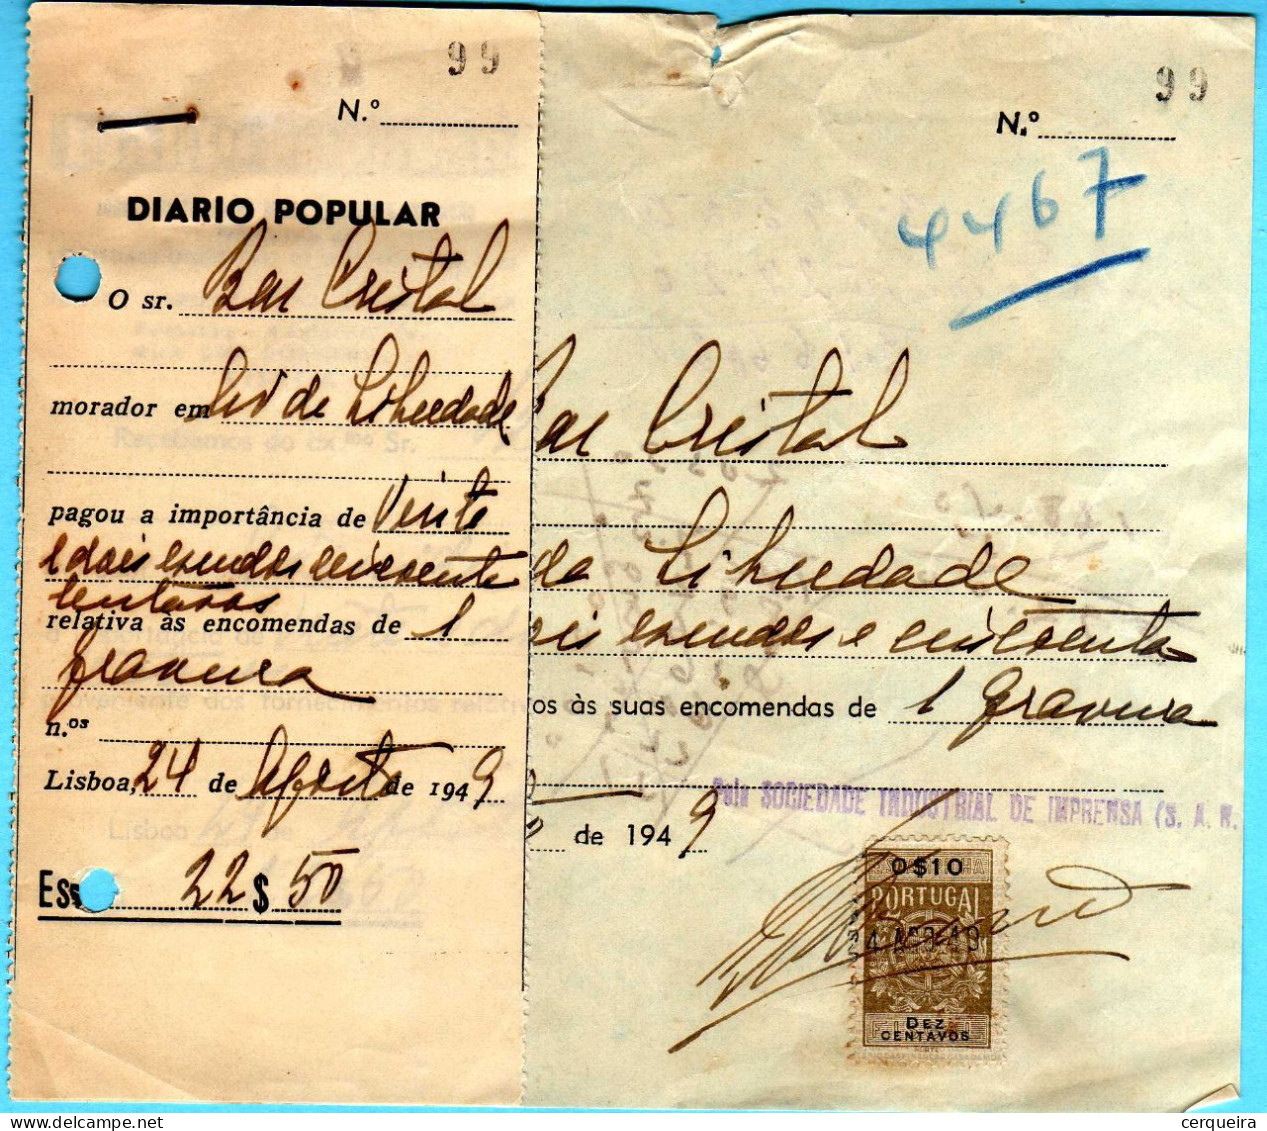 99
N.º
DIARIO POPULAR
O sr. Bar Cristal
morador em Av de Liberdade
pagou a importância de Vinte
e dois escudos e cincoenta
centavos
relativa às encomendas de 1
gravura
n.os
Lisboa, 24 de Agosto de 1949
Esc. 22$50
99
N.º
4467
Bar Cristal
da Liberdade
dois escudos e cincoenta
os às suas encomendas de 1 gravura
de 1949
Pela SOCIEDADE INDUSTRIAL DE IMPRENSA (S. A. R.
0$10
PORTUGAL
4 AGO 49
DEZ
CENTAVOS
cerqueira